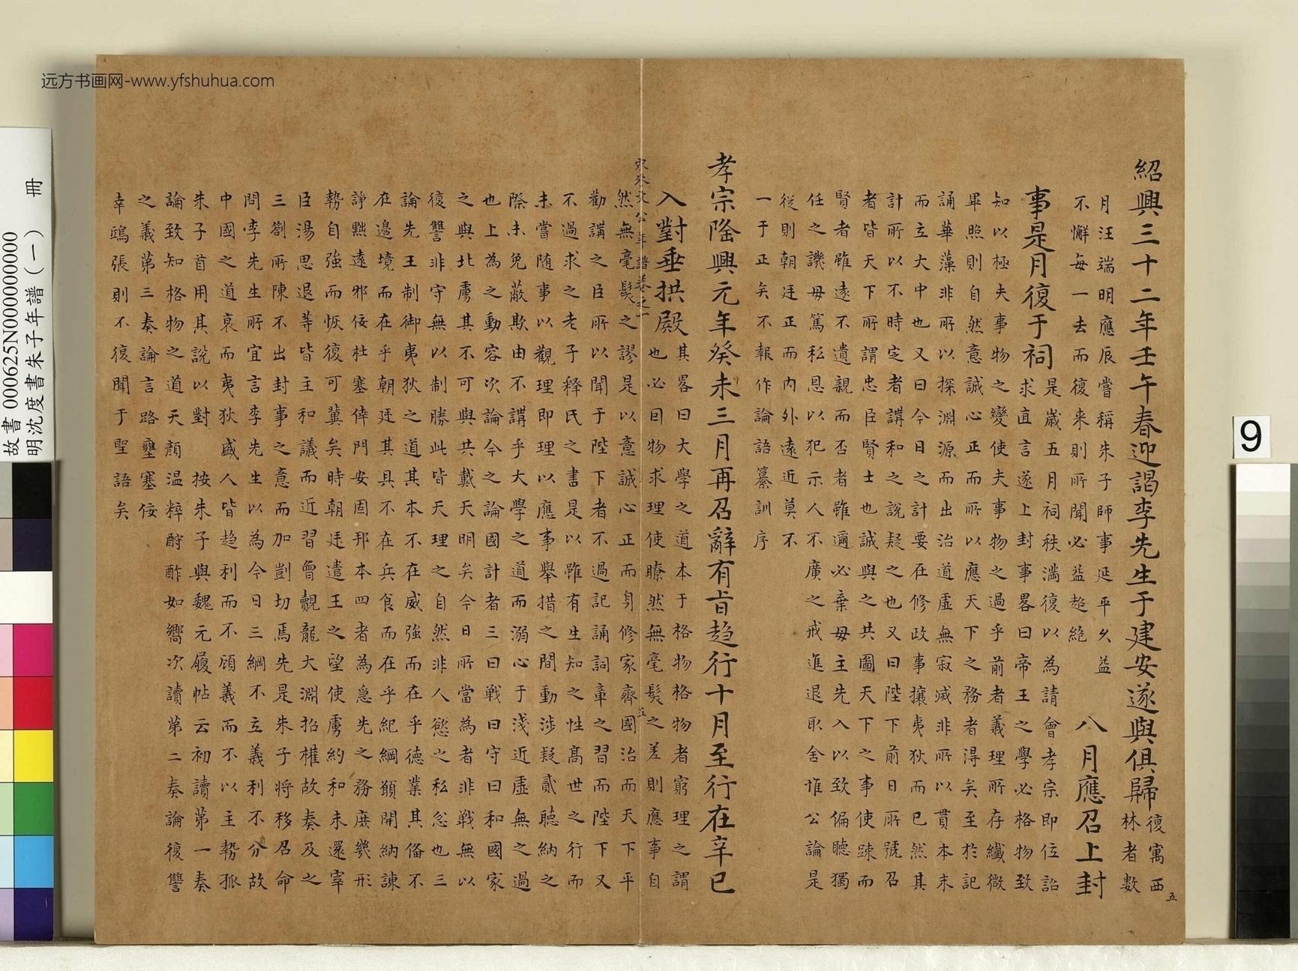 远方书画网-www.yfshuhua.com
故書000625N000000000 冊
明沈度書朱子年譜(一)
9
紹興三十二年壬午春迎謁李先生于建安遂與俱歸復寓西
林者數
月汪端明應辰嘗稱朱子師事延平久益
不懈每一去而復来則所聞必益超絶
八月應召上封
事是月復于祠是歲五月祠秩滿復以為請會孝宗即位詔
求直言遂上封事畧曰帝王之學必格物致
知以極夫事物之變使夫事物之過乎前者義理所存纖微
畢照則自然意誠心正而所以應天下之務者得矣至於記
誦華藻非所以探淵源而出治道虛無寂滅非所以貫本末
而立大中也又曰今日之計要在修政事攘夷狄而已然其
計所以不時定者講和之說疑之也又曰陛下前日所號召
者皆天下所謂忠臣賢士也誠與之共圖天下之事使踈而
賢者雖遠不遺親而否者雖邇必棄毋主先入以致偏聽獨
任之譏毋篤私恩以犯示人不廣之戒進退取舍惟公論是
従則朝廷正而內外遠近莫不
一于正矣不報作論語纂訓序
孝宗隆興元年癸未三月再召辭有旨趍行十月至行在辛巳
入對垂拱殿其畧曰大學之道本于格物格物者窮理之謂
也必因物求理使瞭然無毫髮之差則應事自
宋朱文公年譜卷之一
五
然無毫髮之謬是以意誠心正而身修家齊國治而天下平
勸講之臣所以聞于陛下者不過記誦詞章之習而陛下又
不過求之老子釋氏之書是以雖有生知之性髙世之行而
未嘗随事以觀理即理以應事舉措之間動涉疑貳聽納之
際未免蔽欺由不講乎大學之道而溺心于淺近虛無之過
也上為之動容次論今之論國計者三曰戰曰守曰和國家
之與北虜其不可與共戴天明矣今日所當為者非戰無以
復讐非守無以制勝此皆天理之自然非人慾之私忿也三
論先王制御夷狄之道其本不在威強而在乎德業其俻不
在邊境而在乎朝廷其具不在兵食而在乎紀綱願開納諫
諍黜遠邪佞杜塞倖門安固邦本四者為急先之務庶幾形
勢自強而恢復可冀矣時朝廷遣王之望使虜約和未還宰
臣湯思退等皆主和議而近習曾覿龍大淵招權故奏及之
三劄所陳不出封事之意而加剴切焉先是朱子将移召命
問李先生所宜言李先生以為今日三綱不立義利不分故
中國之道衰而夷狄盛人皆趍利而不顧義而不以主勢孤
朱子首用其說以對 按朱子與魏元履帖云初讀第一奏
論致知格物之道天顔温粹酧酢如嚮次讀第二奏論復讐
之義第三奏論言路壅塞佞
幸鴟張則不復聞于聖語矣
五